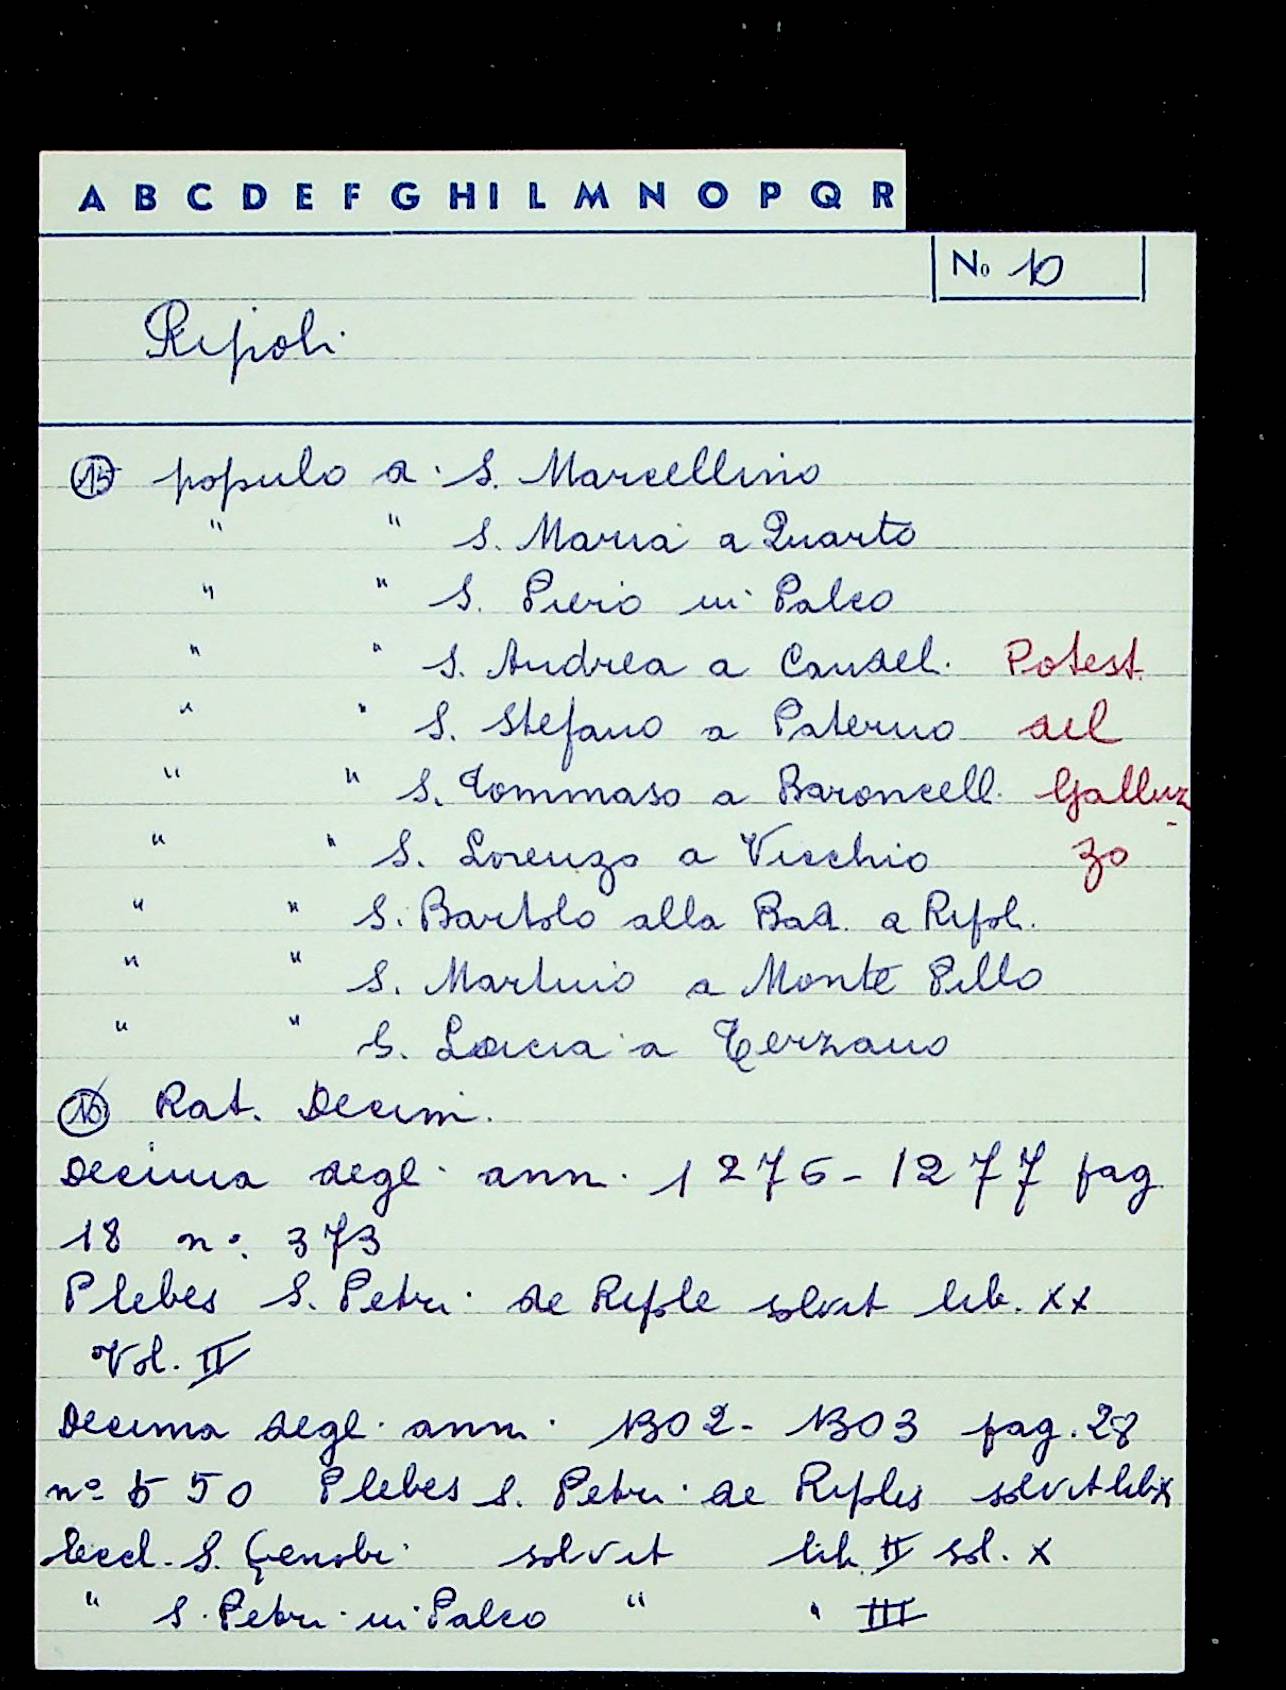 A B C D E F G H I L M N O P Q R
No 10
Ripoli
15 populo a S. Marcellino
" " S. Maria a Quarto
" " S. Piero in Palco
" " S. Andrea a Candel. Potest.
" " S. Stefano a Paterno del
" " S. Tommaso a Baroncell. Galluz
" " S. Lorenzo a Vicchio zo
" " S. Bartolo alla Bad. a Ripol.
" " S. Martino a Monte Pillo
" " S. Lucia a Terzano
16 Rat. Decim.
Decima degl ann. 1276-1277 pag
18 n°. 373
Plebes S. Petri de Riple solvit lib. xx
Vol. II
Decima degl ann. 1302-1303 pag. 28
n° 550 Plebes S. Petri de Riplis solvit lib x
Eccl. S. Çenobi solvit lib. II sol. x
" S. Petri in Palco " " III